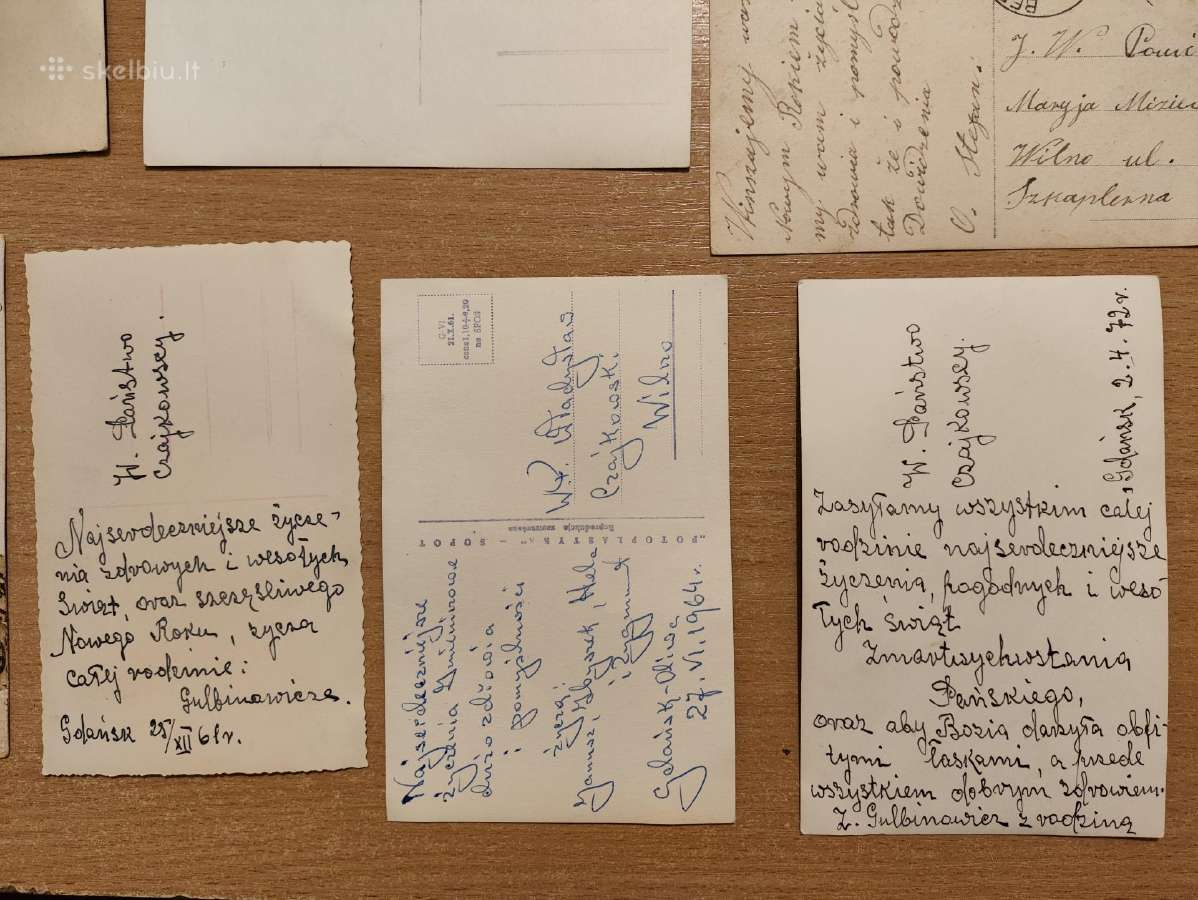 skelbiu.lt
Winszujemy was
Nowym Rokiem
my wam życia
zdrowia i pomyśl
tak że i powodz
Dowidzenia
O. Stefan.
J. W. Pani
Maryja
Wilno ul.
Szkaplerna
W. Państwo
Czajkowscy.
Najserdeczniejsze życze-
nia zdrowych i wesołych
Świąt, oraz szczęśliwego
Nowego Roku, życzą
całej rodzinie:
Gulbinowicze.
Gdańsk 25/XII 61r.
G-VI
21.X.61.
na SPOŚ
W.P. Władysław
Czajkowski.
Wilno
"FOTOPLASTYKA" - SOPOT
Reprodukcja zastrzeżona
Najserdeczniejsze
życzenia Imieninowe
dużo zdrowia
i pomyślności
życzą
Janusz, Zbyszek, Hela
i Zygmunt
Gdańsk-Oliwa
27.VI.1964r.
W. Państwo
Czajkowscy.
Gdańsk, 2.4.72r.
Zasyłamy wszystkim całej
rodzinie najserdeczniejsze
życzenia, pogodnych i weso
łych świąt
Zmartwychwstania
Pańskiego,
oraz aby Bozia darzyła obfi-
tymi łaskami, a przede
wszystkiem dobrym zdrowiem.
Z. Gulbinowicz z rodziną